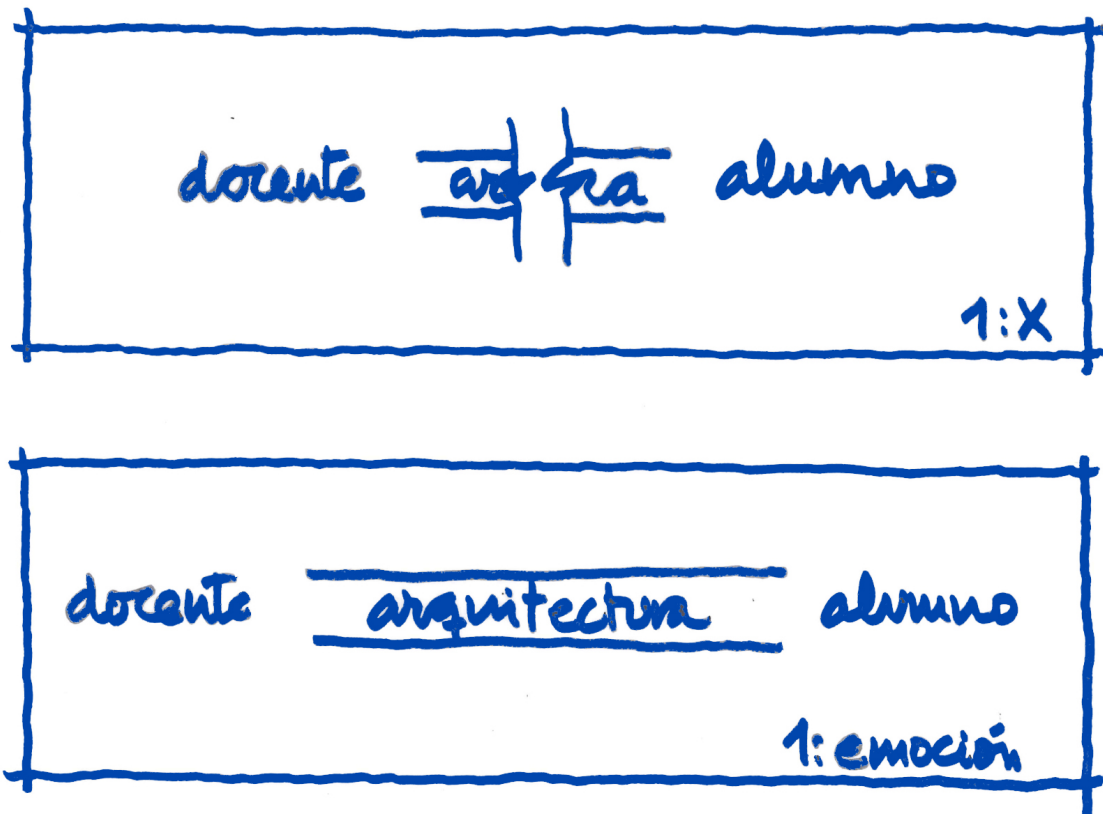 docente ar ra alumno
1:X
docente arquitectura alumno
1: emoción